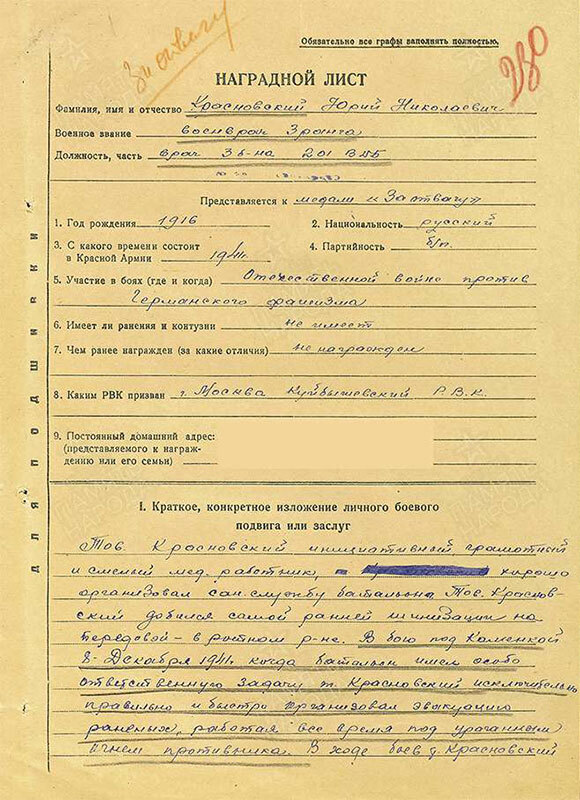 За отвагу
Обязательно все графы заполнять полностью.
НАГРАДНОЙ ЛИСТ
Фамилия, имя и отчество Красновский Юрий Николаевич
Военное звание военврач 3 ранга
Должность, часть врач 3 б-на 201 ВДБ
Представляется к медали "За отвагу"
1. Год рождения 1916
2. Национальность русский
3. С какого времени состоит
в Красной Армии 1941г.
4. Партийность б/п.
5. Участие в боях (где и когда) Отечественной войне против
Германского фашизма
6. Имеет ли ранения и контузии не имеет
7. Чем ранее награжден (за какие отличия) не награжден
8. Каким РВК призван г. Москва Куйбышевский Р.В.К.
9. Постоянный домашний адрес:
(представляемого к награж-
дению или его семьи)
ДЛЯ ПОДШИВКИ
I. Краткое, конкретное изложение личного боевого
подвига или заслуг
Тов. Красновский инициативный, грамотный
и смелый мед. работник, хорошо
организовал сан. службу батальона Тов. Краснов-
ский добился самой ранней шинизации на
передовой - в ротном р-не. В бою под Каменкой
8 Декабря 1941г. когда батальон имел особо
ответственную задачу т. Красновский исключительно
правильно и быстро организовал эвакуацию
раненых, работая все время под ураганным
огнем противника. В ходе боев д. Красновский